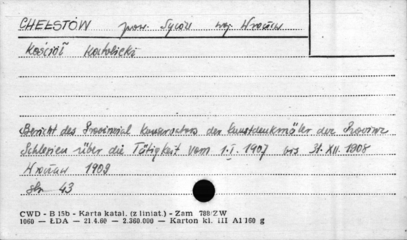 CHEŁSTÓW pow. Syców woj. Wrocław
Kościół katolicki
Bericht des Provinzial Konservators der Kunstdenkmäler der Provinz
Schlesien über die Tätigkeit vom 1.I.1907 bis 31.XII.1908
Wrocław 1909
str. 43
CWD - B 15b - Karta katal. (z liniat.) - Zam 788/ZW
1060 — ŁDA — 21.4.60 - 2.360.000 — Karton kl. III A1 160 g